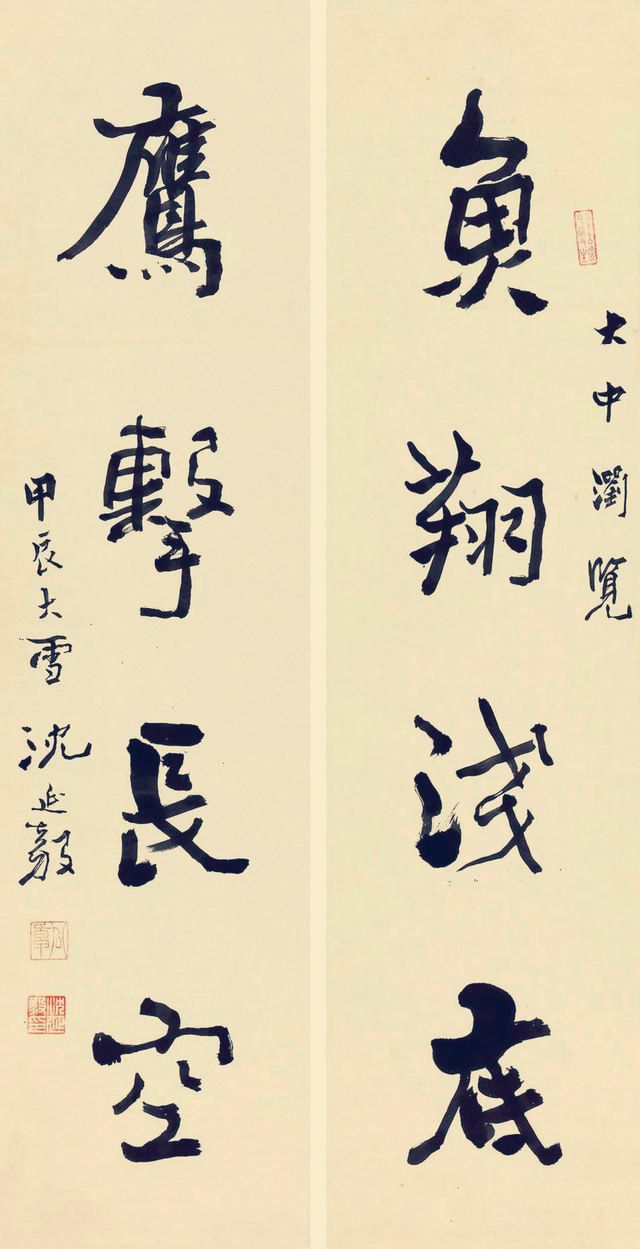 大中浏覽
魚翔浅底
鷹擊長空
甲辰大雪 沈延毅